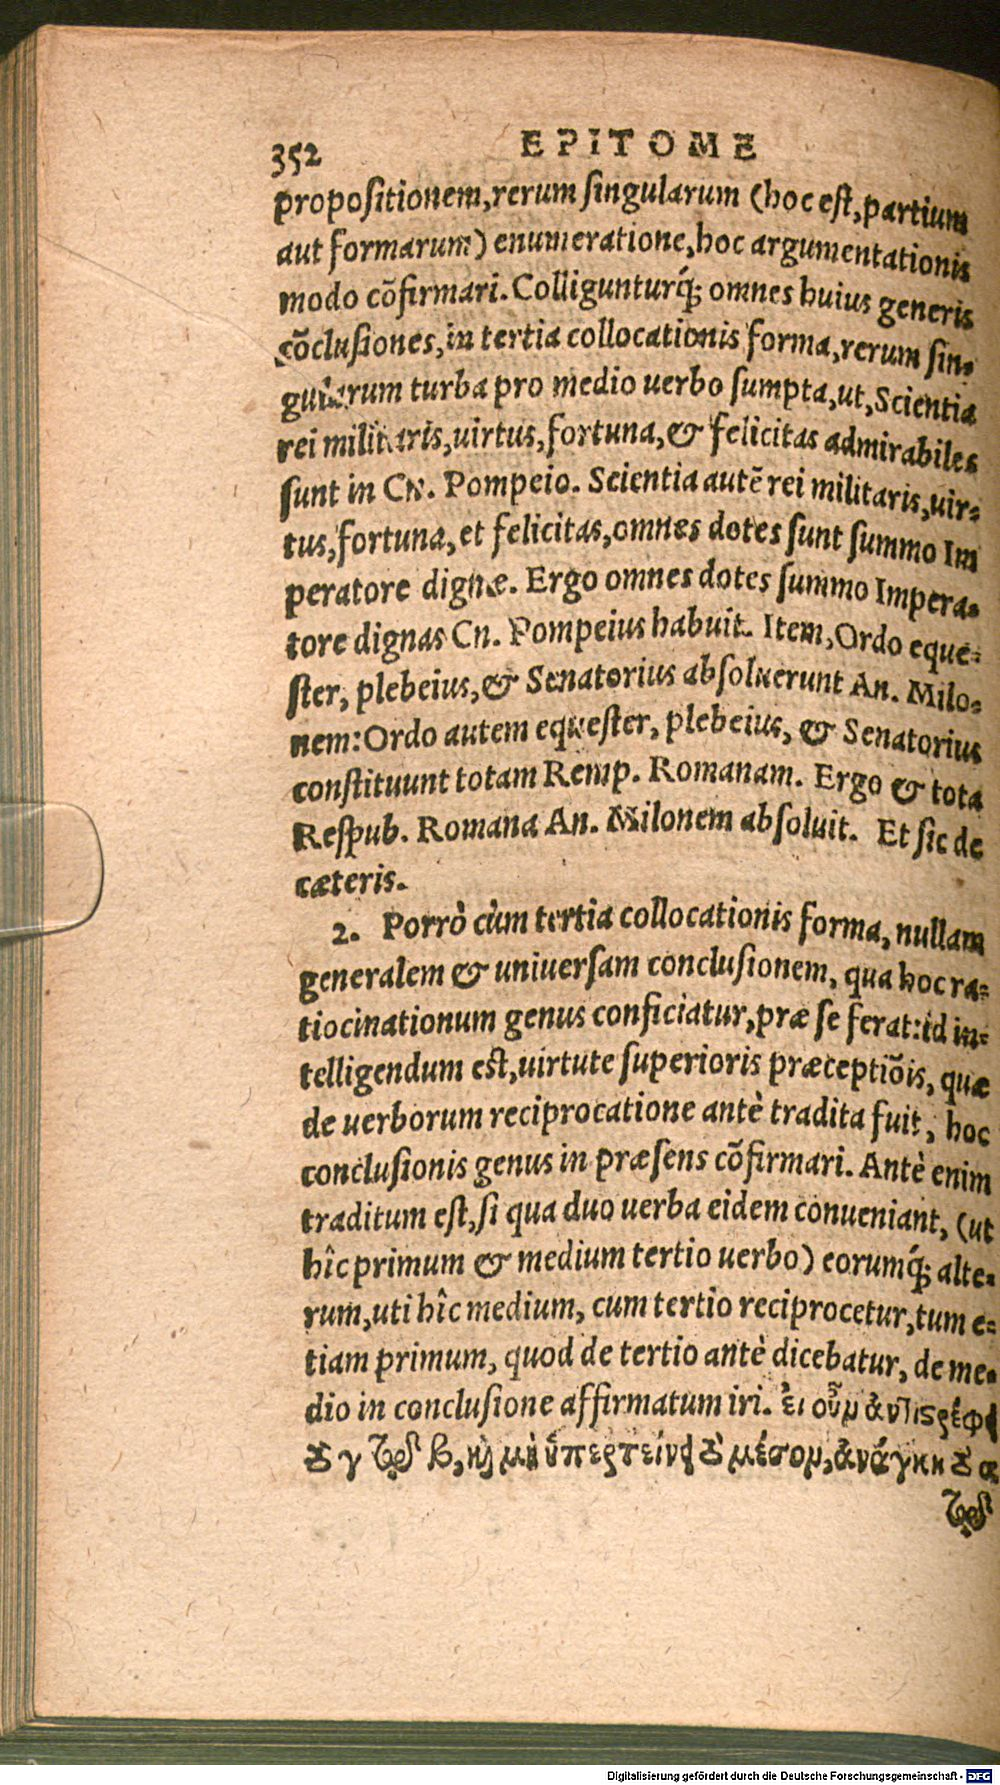 352 EPITOME
propositionem, rerum singularum (hoc est, partium
aut formarum) enumeratione, hoc argumentationis
modo cõfirmari. Colligunturq́; omnes huius generis
cõclusiones, in tertia collocationis forma, rerum sin-
gularum turba pro medio uerbo sumpta, ut, Scientia
rei militaris, uirtus, fortuna, & felicitas admirabiles
sunt in Cn. Pompeio. Scientia autẽ rei militaris, uir-
tus, fortuna, et felicitas, omnes dotes sunt summo Im
peratore dignæ. Ergo omnes dotes summo Impera-
tore dignas Cn. Pompeius habuit. Item, Ordo eque-
ster, plebeius, & Senatorius absoluerunt An. Milo-
nem: Ordo autem equester, plebeius, & Senatorius
constituunt totam Remp. Romanam. Ergo & tota
Respub. Romana An. Milonem absoluit. Et sic de
cæteris.
2. Porrò cùm tertia collocationis forma, nullam
generalem & uniuersam conclusionem, qua hoc ra-
tiocinationum genus conficiatur, præ se ferat: id in-
telligendum est, uirtute superioris præceptiõis, quæ
de uerborum reciprocatione antè tradita fuit, hoc
conclusionis genus in præsens cõfirmari. Antè enim
traditum est, si qua duo uerba eidem conueniant, (ut
hîc primum & medium tertio uerbo) eorumq́; alte-
rum, uti hîc medium, cum tertio reciprocetur, tum e-
tiam primum, quod de tertio antè dicebatur, de me-
dio in conclusione affirmatum iri. ἐι οὖν ἀντιστρέφει
τὸ γ τῷ β, καὶ μὴ ὑπερτείνει τὸ μέσον, ἀνάγκη τὸ α
τῷ
Digitalisierung gefördert durch die Deutsche Forschungsgemeinschaft - DFG